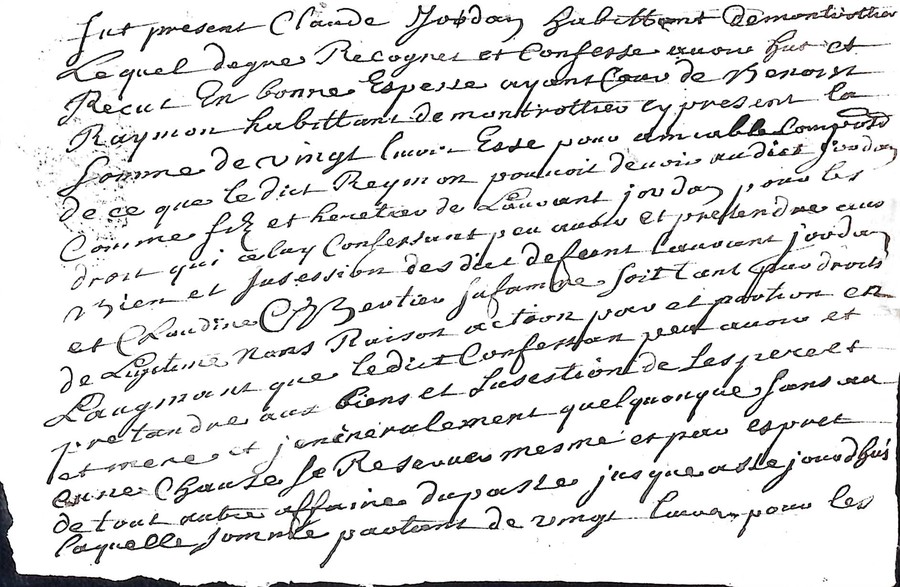 fut present Claude Jordan habittant demontrottier
Lequel degre Recognet et Confesse avoir hut et
Recut En bonne Espesse ayant Cour de Benoist
Raymon habittant demontrottier cy present la
Somme de vingt livre Esse pour amiable Compozo
de ce que ledict Reymon pouvoit devoir audict Jordan
Comme filz et heretier de Lauvant jordan pour les
droit qui celuy Confessant peu avoir et pretendre aux
Bien et susession des dict defeunt Lauvant jordan
et Claudine Bertier sa famme soit tant pour droits
de Legitime Raison action part et portion en
Laugmant que ledict Confessan peut avoir et
pretandre aux biens et susestion de ses pere et
et mere et jeneneralement quelquonque sans au
cune Chause se Reserver mesme et par espret
de tout autre affaire du passe jusque aste jourdhui
laquelle somme partant de vingt livre pour les